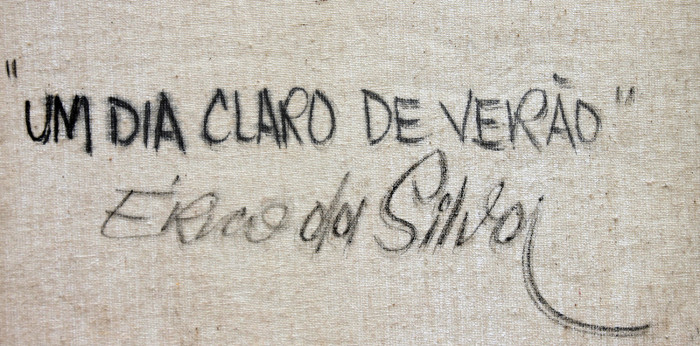 "UM DIA CLARO DE VERÃO"
Érico da Silva